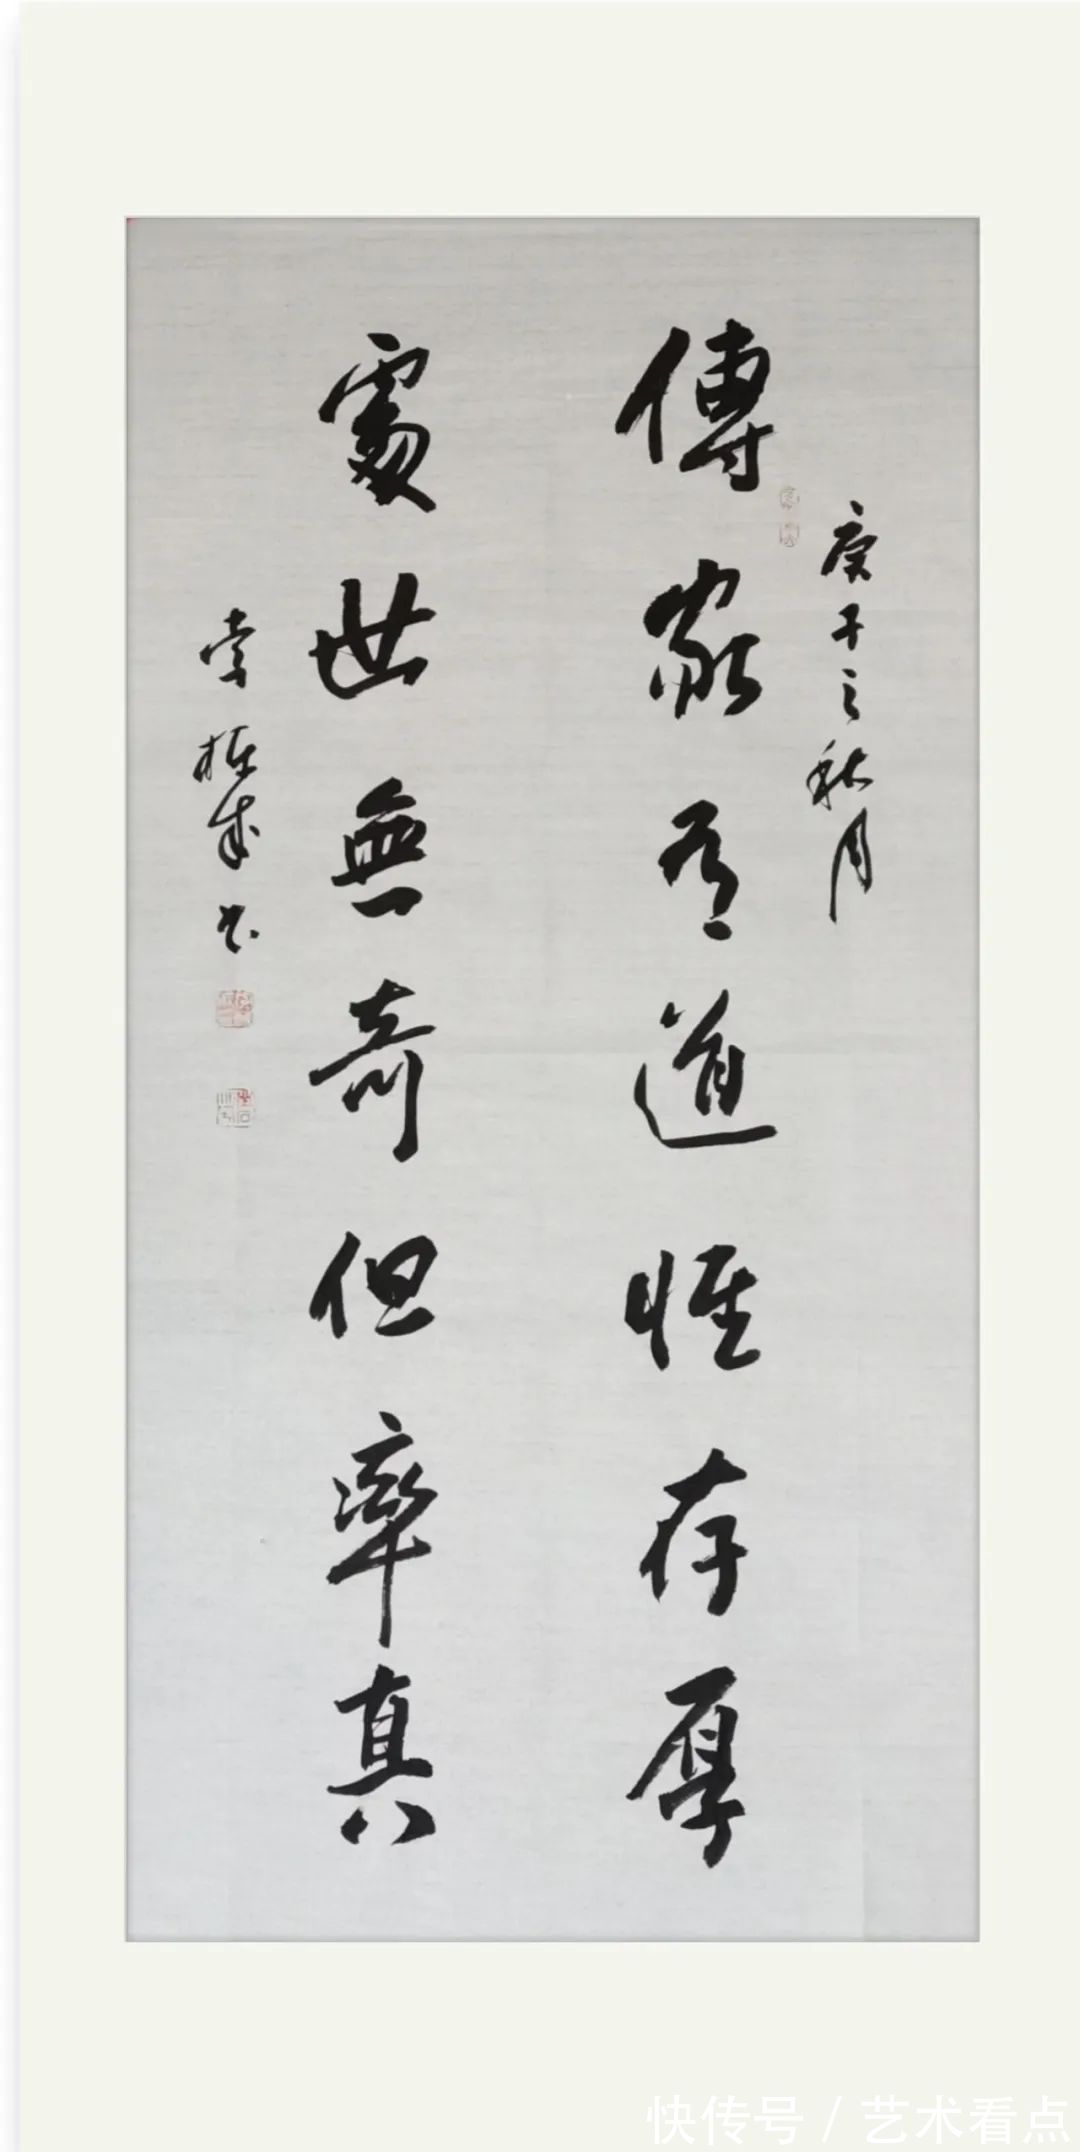 庚子之秋月
傳家有道惟存厚
處世無奇但率真
成书
快传号 / 艺术看点